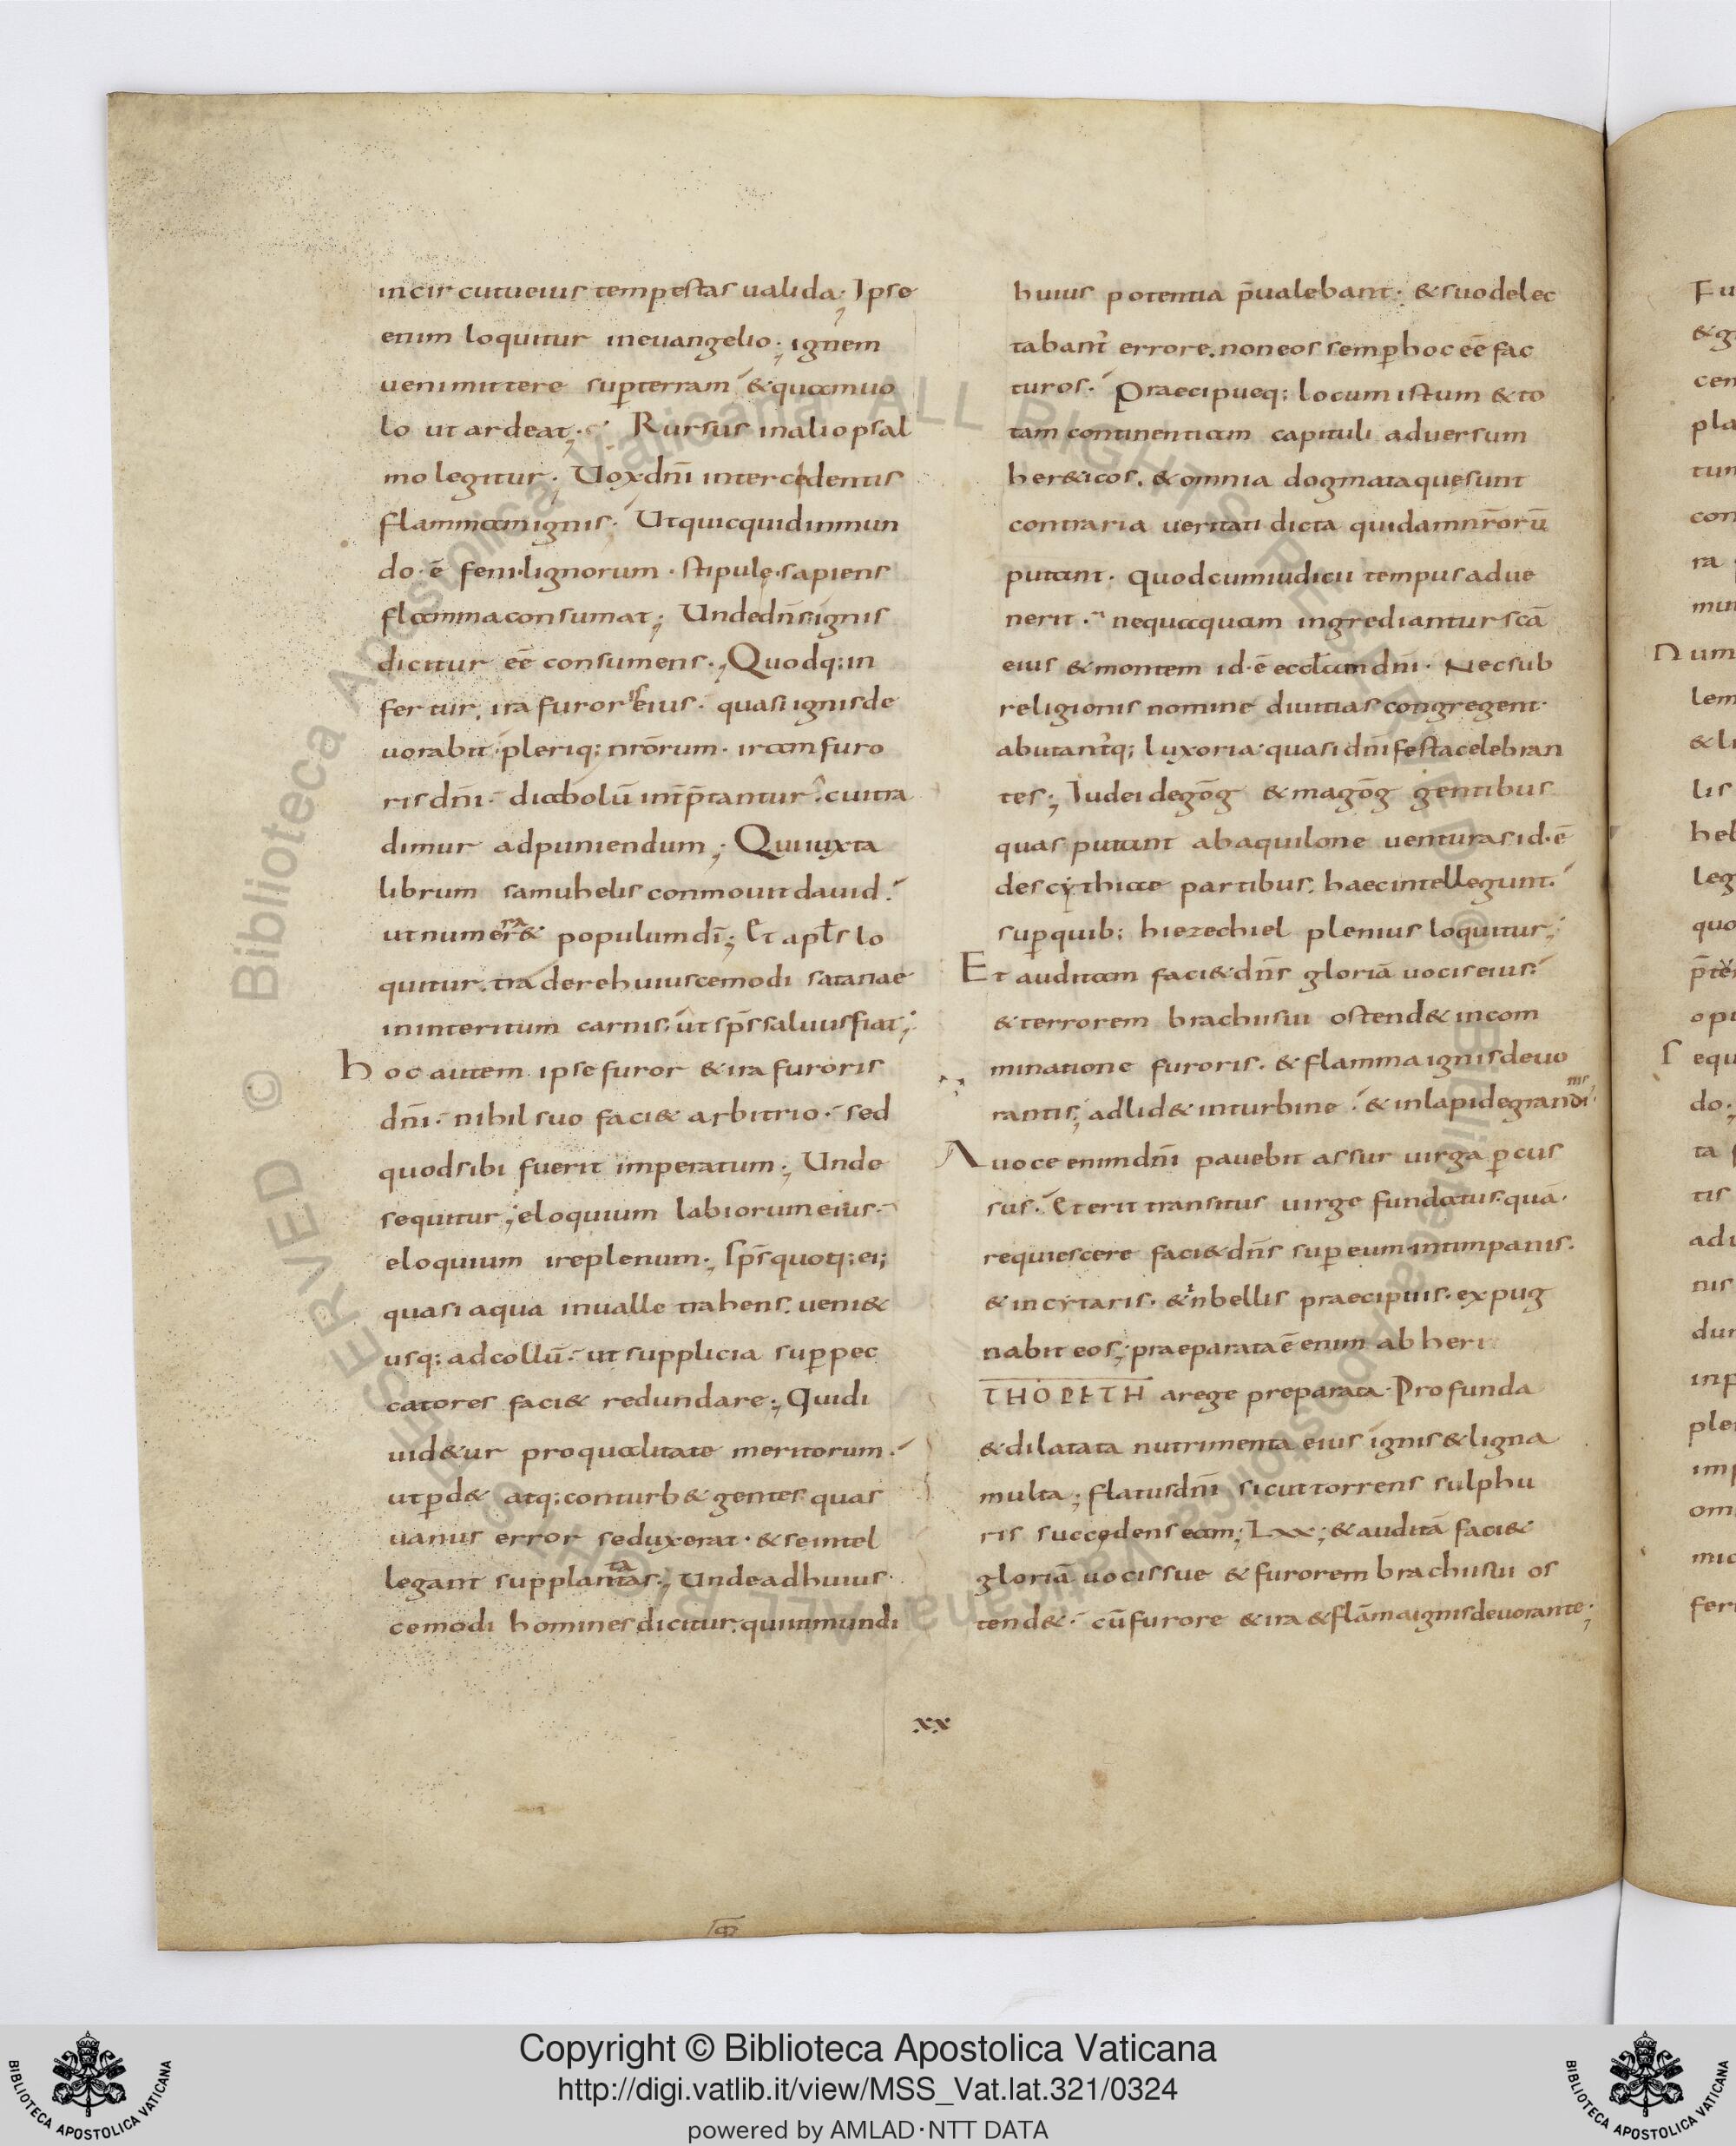 incircutueius tempestas ualida; Ipse
enim loquitur ineuangelio; ignem
uenimittere sup̄terram &quamuo
lo ut ardeat; Rursus inaliopsal
mo legitur. Uoxdn̄i intercedentis
flammamignis. Utquicquidinmun
do·ē feni·lignorum·stipule·sapiens
flammaconsumat; Undedn̄s·ignis
dicitur eē consumens; Quodq;in
fertur. ira furorisfeius· quasiignisde
uorabit·pleriq; nr̄orum· iramfuro
risdn̄i· diabolū int̄p̄tantur. cuitra
dimur adpuniendum; Quiiuxta
librum samuhelis conmouitdauid.
utnumerar& populumdī; Et apl̄s lo
quitur. traderehuiuscemodi satanae
ininteritum carnis. ut sp̄ssaluusfiat;
hoc autem ipsefuror &ira furoris
dn̄i· nihil suo faci& arbitrio· sed
quodsibi fuerit imperatum; Unde
sequitur; eloquium labiorumeius·
eloquium ireplenum; Sp̄squoq;ei;
quasi aqua inualle trahens. ueni&
usq; adcollū· utsupplicia sup̄pec
catores faci& redundare; Quidi
uid&ur proqualitate meritorum.
utp̄d& atq;conturb& gentes quas
uanus error seduxerat· &seintel
legant supplantatas; Undeadhuius
cemodi hominesdicitur. quiinmundi
huius potentia p̄ualebant· &suodelec
tabant̄ errore. noneos semp̄hoc eē fac
turos. Praecipueq; locumistum &to
tam continentiam capituli aduersum
her&icos. &omnia dogmataquesunt
contraria ueritati dicta quidamnr̄orū
putant. quodcumiudicii tempusadue
nerit. nequaquam ingredianturscā
eius &montem id·ē eccl̄amdn̄i. Necsub
religionis nomine diuitiascongregent·
abutant̄q; luxoria·quasi dn̄ifestacelebran
tes; Iudei degōg &magōg gentibus
quas putant abaquilone uenturasid·ē
descythiae partibus. haecintellegunt.
sup̄quib; hiezechiel plenius loquitur;
Et auditam faci&dn̄s gloriā uociseius.
&terrorem brachiisui ostend&incom
minatione furoris. &flammaignisdeuo
rantis; adlid&inturbine. &inlapidegrandinis
A uoce enimdn̄i pauebit assur uirga p̄cus
sus. Et erit transitus uirge fundatus.quā·
requiescere faci&dn̄s sup̄eum·intimpanis.
&incytaris. &inbellis praecipuis·expug
nabit eos; praeparataē enim ab heri
THOPETH arege preparata. Profunda
&dilatata nutrimenta eius ignis&ligna
multa; flatusdn̄i sicuttorrens sulphu
ris succedenseam; Lxx; &auditā faci&
gloriā uocissue &furorem brachiisui os
tend&· cūfurore &ira &flāmaignisdeuorante;
xx
Copyright © Biblioteca Apostolica Vaticana
http://digi.vatlib.it/view/MSS_Vat.lat.321/0324
powered by AMLAD·NTT DATA
BIBLIOTECA APOSTOLICA VATICANA
BIBLIOTECA APOSTOLICA VATICANA